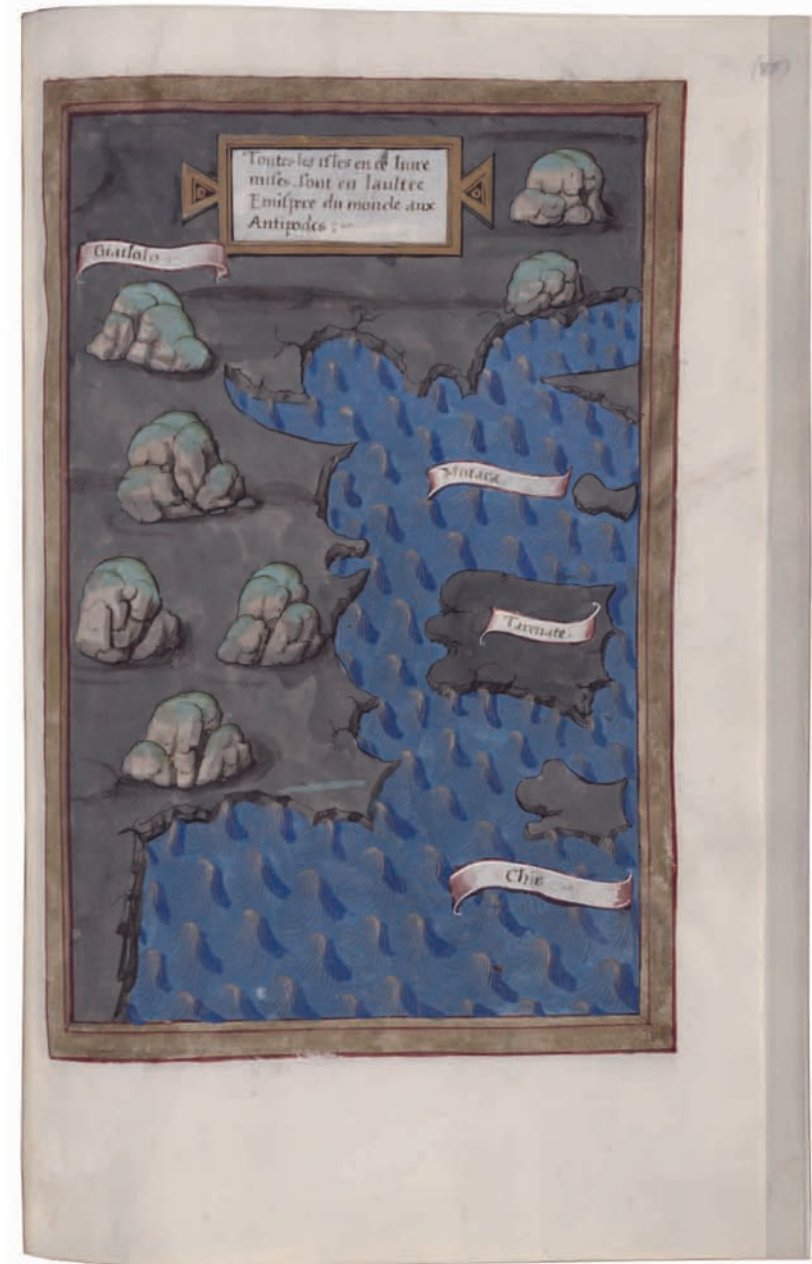 Toutes les isles en ce liure
mises sont en laultre
Emispre du monde aux
Antipodes :~
Giailolo
Mutara
Tarenate.
Chie